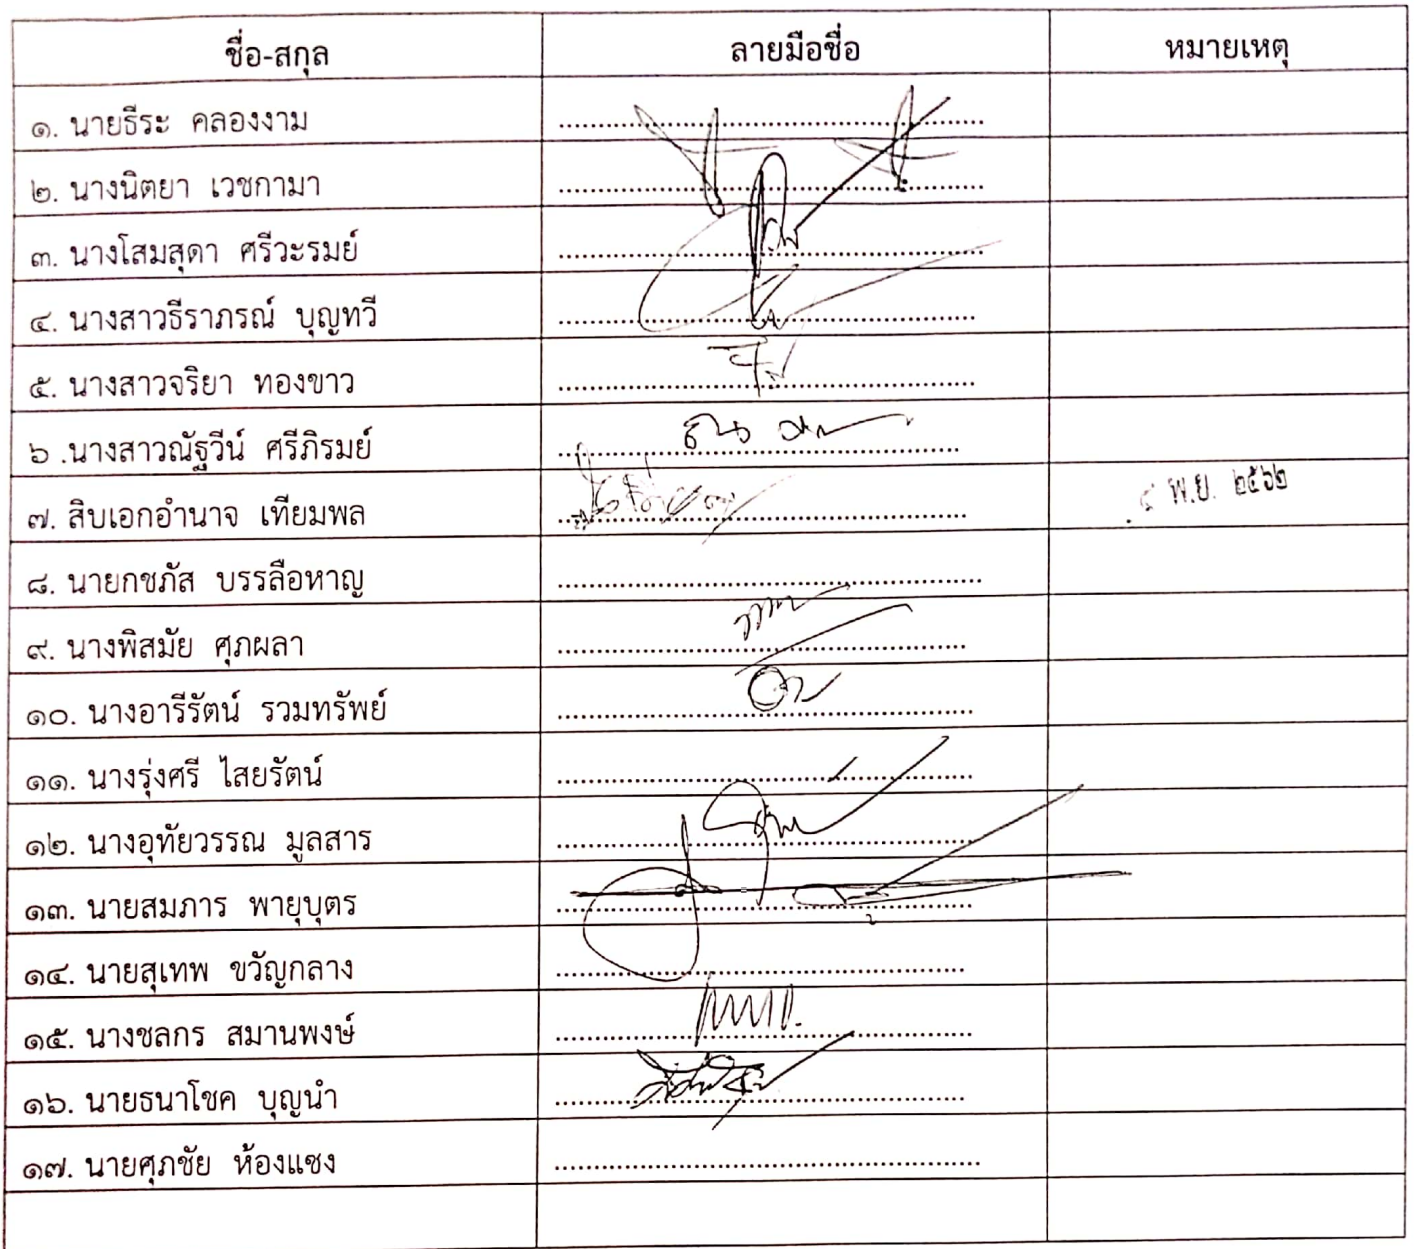 ชื่อ-สกุล ลายมือชื่อ หมายเหตุ
๑. นายธีระ คลองงาม
๒. นางนิตยา เวชกามา
๓. นางโสมสุดา ศรีวะรมย์
๔. นางสาวธีราภรณ์ บุญทวี
๕. นางสาวจริยา ทองขาว
๖ .นางสาวณัฐวีน์ ศรีภิรมย์
๗. สิบเอกอำนาจ เทียมพล ๔ พ.ย. ๒๕๖๒
๘. นายกชภัส บรรลือหาญ
๙. นางพิสมัย ศุภผลา
๑๐. นางอารีรัตน์ รวมทรัพย์
๑๑. นางรุ่งศรี ไสยรัตน์
๑๒. นางอุทัยวรรณ มูลสาร
๑๓. นายสมภาร พายุบุตร
๑๔. นายสุเทพ ขวัญกลาง
๑๕. นางชลกร สมานพงษ์
๑๖. นายธนาโชค บุญนำ
๑๗. นายศุภชัย ห้องแซง